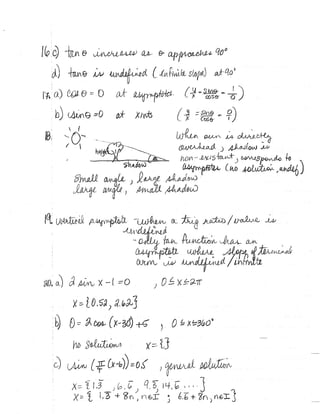 16 c) tan θ increases as θ approaches 90°
d) tan θ is undefined (infinite slope) at 90°
17. a) cos θ = 0 at asymptotes (y/x = sin θ/cos θ = 1/0)
b) sin θ = 0 at x ints (y/x = sin θ/cos θ = 0/1)
18. When sun is directly
overhead, shadow is
height
non-existant, corresponds to
shadow
asymptotes (no solution, undef)
small angle, large shadow
large angle, small shadow
19. Vertical Asymptote - when a trig ratio/value is
undefined
- only tan function has an
asymptote where slope of terminal
arm is undefined/infinite
20. a) 2 sin x - 1 = 0 , 0 ≤ x ≤ 2π
x = {0.52, 2.62}
b) 0 = 2 cos (x-30) + 5 , 0 ≤ x ≤ 360°
no solutions x = { }
c) sin (π/4 (x-6)) = 0.5 , general solution
x = {1.3, 6.6, 9.3, 14.6 .... }
x = { 1.3 + 8n, n∈I ; 6.6 + 8n, n∈I }